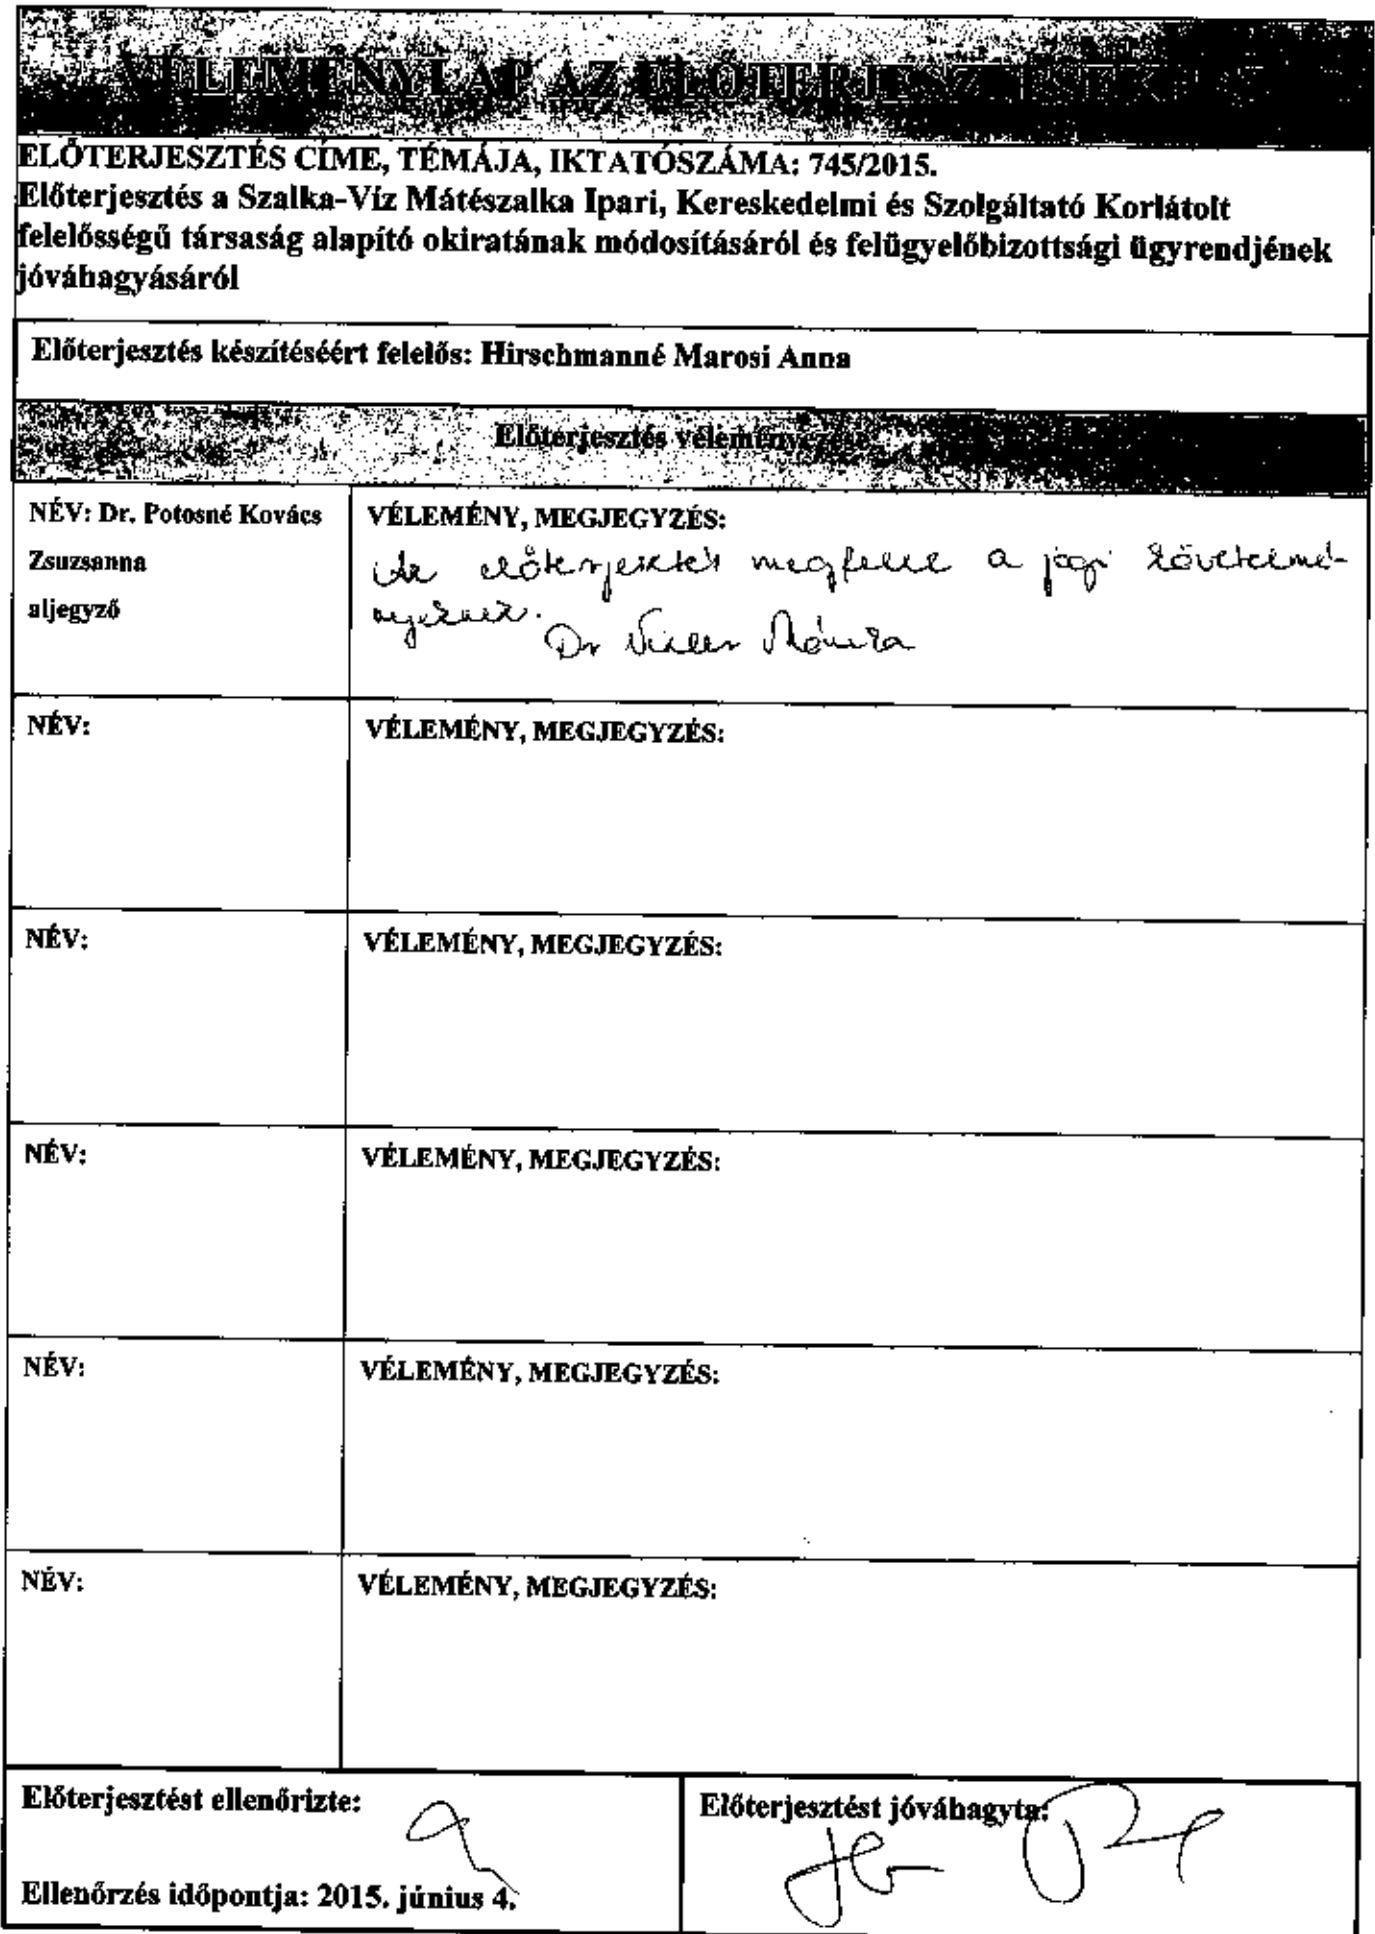 VÉLEMÉNYLAP AZ ELŐTERJESZTÉSEK
ELŐTERJESZTÉS CÍME, TÉMÁJA, IKTATÓSZÁMA: 745/2015.
Előterjesztés a Szalka-Víz Mátészalka Ipari, Kereskedelmi és Szolgáltató Korlátolt
felelősségű társaság alapító okiratának módosításáról és felügyelőbizottsági ügyrendjének
jóváhagyásáról
Előterjesztés készítéséért felelős: Hirschmanné Marosi Anna
Előterjesztés véleményezése
NÉV: Dr. Potosné Kovács
Zsuzsanna
aljegyző
VÉLEMÉNY, MEGJEGYZÉS:
Az előterjesztés megfelel a jogi követelmé-
nyeknek.
Dr Mónika
NÉV:
VÉLEMÉNY, MEGJEGYZÉS:
NÉV:
VÉLEMÉNY, MEGJEGYZÉS:
NÉV:
VÉLEMÉNY, MEGJEGYZÉS:
NÉV:
VÉLEMÉNY, MEGJEGYZÉS:
NÉV:
VÉLEMÉNY, MEGJEGYZÉS:
Előterjesztést ellenőrizte:
Ellenőrzés időpontja: 2015. június 4.
Előterjesztést jóváhagyta: